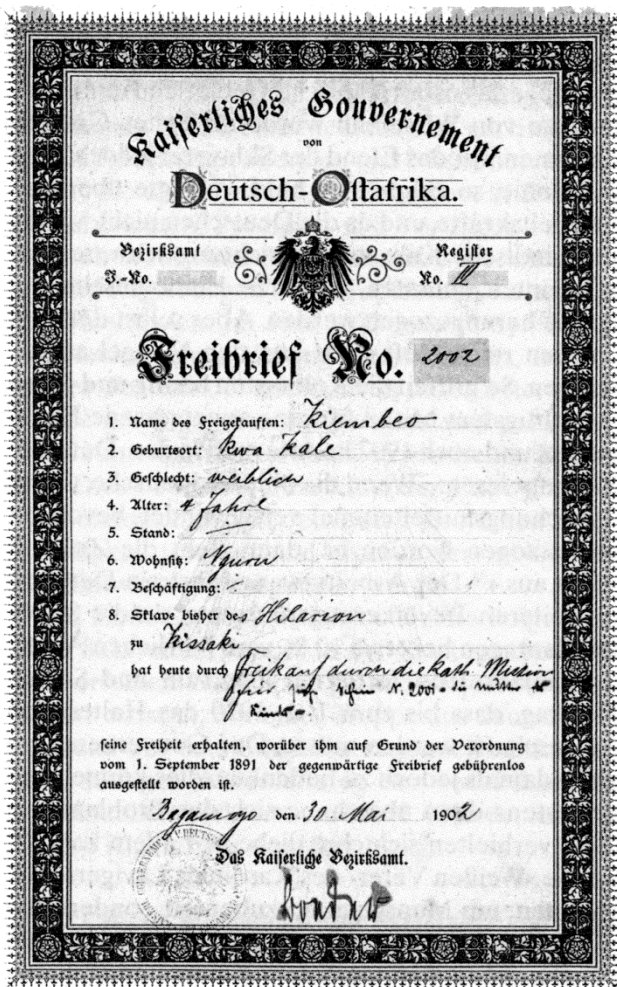 Kaiserliches Gouvernement
von
Deutsch-Ostafrika.
Bezirksamt
J.-No.
Register
No. III
Freibrief No. 2002
1. Name des Freigekauften: Kiembeo
2. Geburtsort: Kwa Kale
3. Geschlecht: weiblich
4. Alter: 4 Jahre
5. Stand:
6. Wohnsitz: Nguru
7. Beschäftigung: -
8. Sklave bisher des Hilarion
zu Kissaki
hat heute durch Freikauf durch die kath. Mission
N. 2001 - die Mutter des
Kindes -
seine Freiheit erhalten, worüber ihm auf Grund der Verordnung
vom 1. September 1891 der gegenwärtige Freibrief gebührenlos
ausgestellt worden ist.
Bagamoyo den 30 Mai 1902
Das Kaiserliche Bezirksamt.